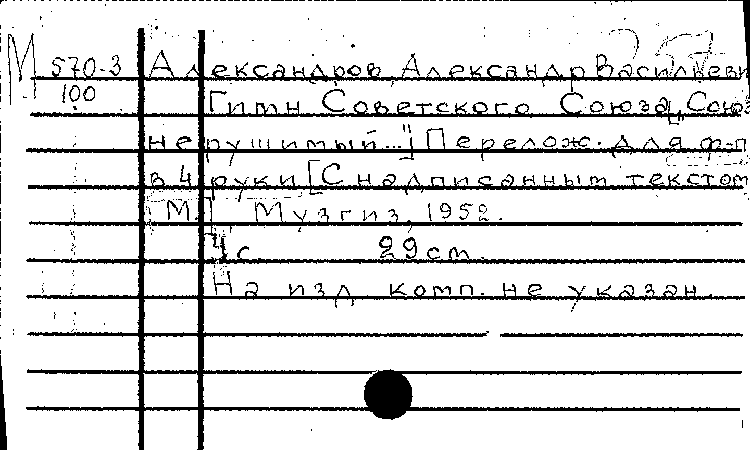 М 570-3 Александров, Александр Васильеви
100 Гимн Советского Союза ["Союз
нерушимый..."] Перелож. для ф-п
в 4 руки [С надписанным текстом
[М.] Музгиз, 1952.
4 с. 29 см.
На изд. комп. не указан.